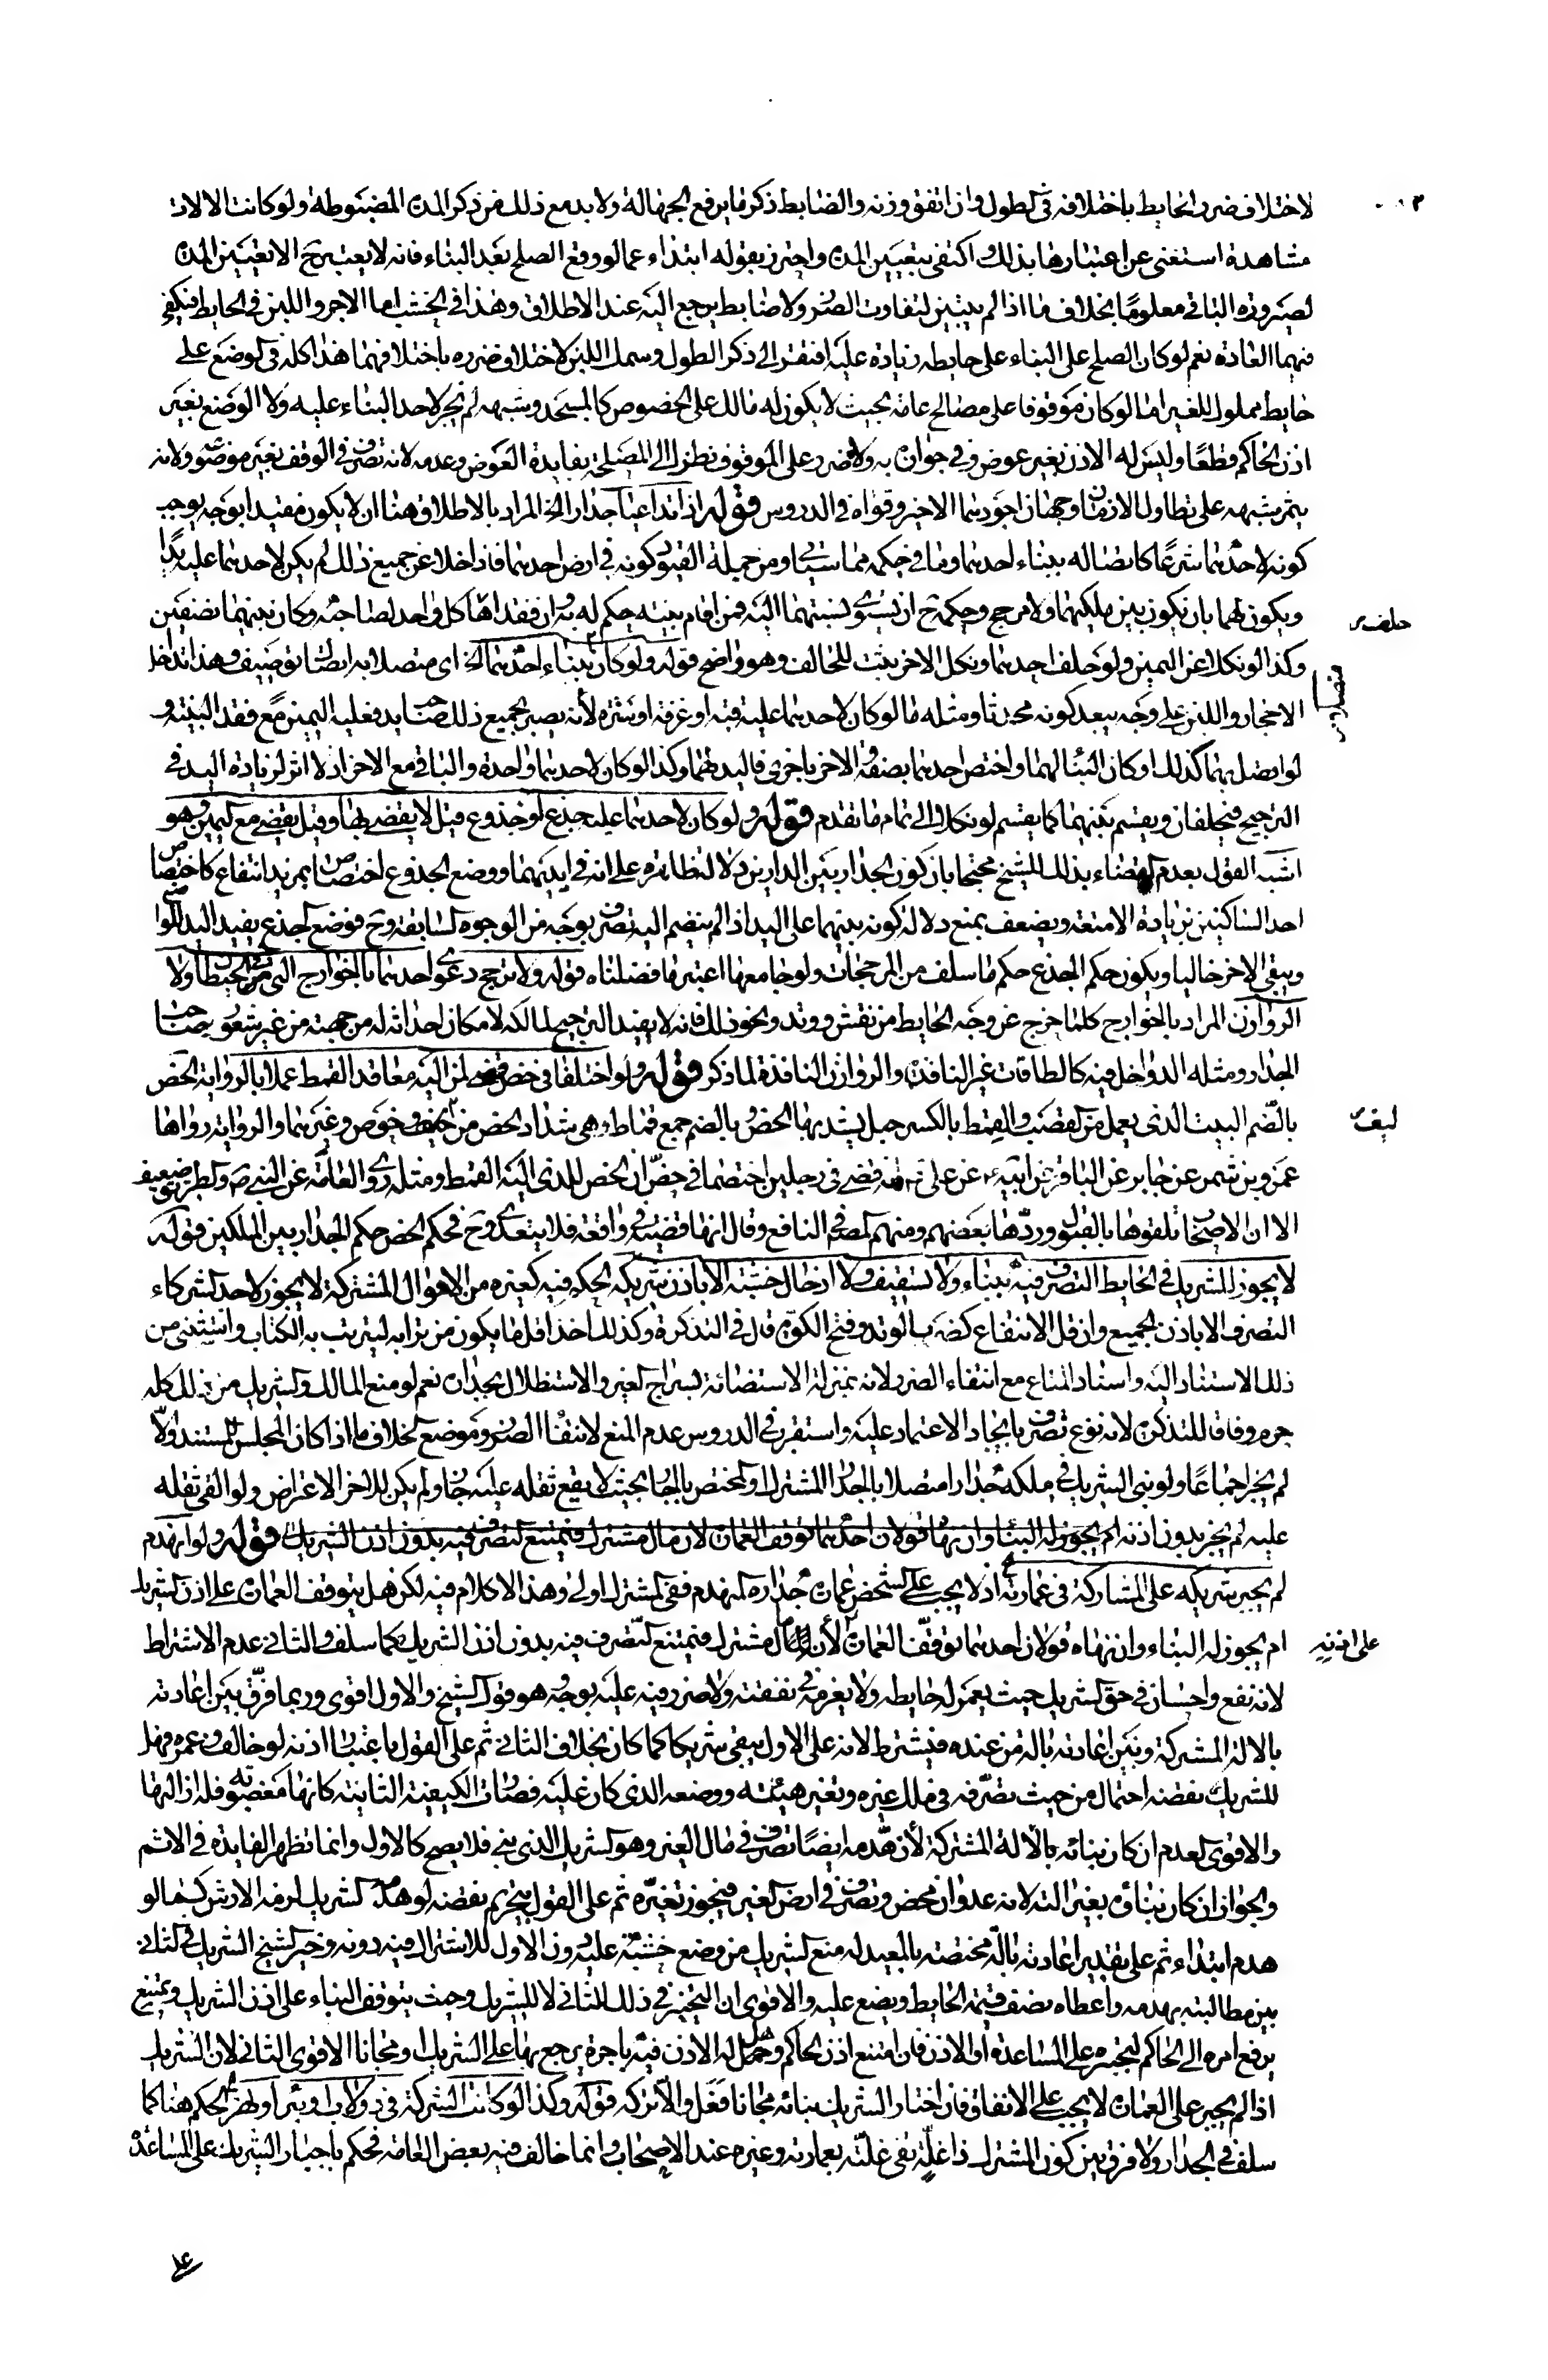 لاختلاف ضرر الحايط باختلافه في الطول وان اتفق وزنه والضابط ذكر ما يرفع الجهالة ولا بد مع ذلك من ذكر المدة المضبوطة ولو كانت الالات
مشاهدة استغنى عن اعتبارها بذلك واكتفى بتعيين المدة واحترز بقوله ابتداء عما لو وقع الصلح بعد البناء فانه لا يعتبر ح الا تعيين المدة
لصيرورة الباقي معلوما بخلاف ما اذا لم يتبين لتفاوت الضرر ولا ضابط يرجع اليه عند الاطلاق وهذا في الخشب اما الاجر واللبن في الحايط فيكفي
فيهما العادة نعم لو كان الصلح على البناء على حايطه زيادة عليه افتقر الى ذكر الطول وسمك اللبن لاختلاف ضرره باختلافهما هذا كله في الوضع على
حايط مملوك للغير اما لو كان موقوفا على مصالح عامة بحيث لا يكون له مالك على الخصوص كالمسجد وشبهه لم يجز لاحد البناء عليه ولا الوضع بغير
اذن الحاكم قطعا وليس له الاذن بغير عوض وفي جوازه به ولا ضرر على الموقوف نظرا الى المصلحة بفايدة العوض وعدمه لانه تصرف في الوقف بغير موضعه ولانه
يثمر شبهه على تطاول الازمان وجهان اجودهما الاخير وقواه في الدروس قوله اذا تداعيا جدارا الخ المراد بالاطلاق هنا ان لا يكون مقيدا بوجه يوجب
كونه لاحدهما شرعا كاتصاله ببناء احدهما وما في حكمه مما سيأتي ومن جملة القيود كونه في ارض احدهما فاذا خلا عن جميع ذلك لم يكن لاحدهما عليه يد
ويكون لهما بان يكون بين ملكيهما ولا مرجح وحكمه ح ان يسوى نسبتهما اليه فمن اقام بينة حكم له به وان فقداها حلف كل واحد لصاحبه وكان بينهما نصفين
وكذا لو نكلا عن اليمين ولو حلف احدهما ونكل الاخر يثبت للحالف وهو واضح قوله ولو كان ببناء احدهما الخ اي متصلا به اتصال ترصيف وهذا تداخل
الاحجار واللبن على وجه يبعد كونه محدثا ومثله ما لو كان لاحدهما عليه قبة او غرفة او سترة لأنه يصير بجميع ذلك صاحب يد فعليه اليمين مع فقد البينة و
لو اتصل بهما كذلك او كان البناء لهما واختص احدهما بصفة والاخر باخرى فاليد لهما وكذا لو كان لاحدهما واحدة والباقي مع الاخر اذ لا اثر لزيادة اليد في
الترجيح فيحلفان ويقسم بينهما كما يقسم لو نكلا الى تمام ما تقدم قوله ولو كان لاحدهما عليه جذع او جذوع قيل لا يقضى بها وقيل يقضى مع اليمين وهو
اشبه القول بعدم القضاء بذلك للشيخ محتجا بان كون الجدار بين الدارين دلالة ظاهرة على انه في ايديهما ووضع الجذوع اختصاص بمزيد انتفاع كاختصاص
احد الساكنين بزيادة الامتعة ويضعف بمنع دلالة كونه بينهما على اليد اذا لم ينضم اليه تصرف بوجه من الوجوه السابقة وح فوضع الجذع يفيد اليد للواضع
ويبقى الاخر خاليا ويكون حكم الجذع حكم ما سلف من المرجحات ولو جامعها اعتبر ما فصلناه قوله ولا ترجح دعوى احدهما بالخوارج التي في الحيطان ولا
الروازن المراد بالخوارج كلما خرج عن وجه الحايط من نقش ووتد ونحو ذلك فانه لا يفيد الترجيح لمالكه لامكان احداثه له من جهته من غير شعور صاحب
الجدار ومثله الدواخل فيه كالطاقات غير النافذة والروازن النافذة لما ذكر قوله ولو اختلفا في خص قضى لمن اليه معاقد القمط عملا بالرواية الخص
بالضم البيت الذي يعمل من القصب والقمط بالكسر حبل يشد بها الخص وبالضم جمع قماط وهي شداد الخص من ليف وخوص وغيرهما والرواية رواها
عمرو بن شمر عن جابر عن الباقر عن ابيه عن علي ع انه قضى في رجلين اختصما في خص ان الخص للذي اليه القمط ومثله روى العامة عن النبي ص والطريق ضعيف
الا ان الاصحاب تلقوها بالقبول وردها بعضهم ومنهم المصنف في النافع وقال انها قضية في واقعة فلا يتعدى وح فحكم الخص حكم الجدار بين الملكين قوله
لا يجوز للشريك في الحايط التصرف فيه ببناء ولا تسقيف ولا ادخال خشبة الا باذن شريكه الحكم فيه كغيره من الاموال المشتركة لا يجوز لاحد الشركاء
التصرف الا باذن الجميع وان قل الانتفاع كضرب الوتد وفتح الكوة قال في التذكرة وكذلك اخذ اقل ما يكون من ترابه ليترب به الكتاب واستثنى من
ذلك الاستناد اليه واسناد المتاع مع انتفاء الضرر لانه بمنزلة الاستضائة بسراج الغير والاستظلال بجداره نعم لو منع المالك والشريك من ذلك كله
حرم وفاقا للتذكرة لانه نوع تصرف بايجاد الاعتماد عليه واستقرب في الدروس عدم المنع لانتفاء الضرر وموضع الخلاف ما اذا كان المجلس للمستند والا
لم يجز اجماعا ولو بنى الشريك في ملكه جدارا متصلا بالجدار المشترك او المختص بالجار بحيث لا يقع ثقله عليه جاز ولم يكن للاخر الاعتراض ولو القى ثقله
عليه لم يجز بدون اذنه ام يجوز له البناء وان نهاه قولان احدهما توقف العمارة لان مال مشترك فيمتنع التصرف فيه بدون اذن الشريك قوله ولو انهدم
لم يجبر شريكه على المشاركة في عمارته اذ لا يجب على الشخص عمارة جداره المنهدم ففي المشترك اولى وهذا لا كلام فيه لكن هل يتوقف العمارة على اذن الشريك
ام يجوز له البناء وان نهاه قولان احدهما توقف العمارة لأن المال مشترك فيمتنع التصرف فيه بدون اذن الشريك كما سلف والثاني عدم الاشتراط
لانه نفع واحسان في حق الشريك حيث يعمر له حايطه ولا يغرمه في نفقته ولا ضرر فيه عليه بوجه وهو قول الشيخ والاول اقوى وربما فرق بين اعادته
بالالة المشتركة وبين اعادته بالة من عنده فيشترط لانه على الاول يبقى شريكا كما كان بخلاف الثاني ثم على القول باعتبار اذنه لو خالف وعمره فهل
للشريك نقضه احتمال من حيث تصرفه في ملك غيره وتغير هيئته ووضعه الذي كان عليه فصارت الكيفية الثانية كانها مغصوبة فله ازالتها
والاقوى العدم ان كان بنائه بالآلة المشتركة لأن هدمه ايضا تصرف في مال الغير وهو الشريك الذي بنى فلا يصح كالاول وانما تظهر الفايدة في الاثم
والجواز ان كان بناؤه بغير الته لانه عدوان محض وتصرف في ارض الغير فيجوز تغييره ثم على القول بتحريم نقضه لو هدمه الشريك لزمه الارش كما لو
هدم ابتداء ثم على تقدير اعادته بالة مختصة بالمعيد له منع الشريك من وضع خشبة عليه دون الاول للاشتراك فيه دونه وخير الشيخ الشريك في الثاني
بين مطالبته بهدمه واعطاه نصف قيمة الحايط ويضع عليه والاقوى ان التخيير في ذلك للثاني لا للشريك وحيث يتوقف البناء على اذن الشريك ويمتنع
يرفع امره الى الحاكم ليجبره على المساعدة او الاذن فان امتنع اذن الحاكم وهل له الاذن فيه باجرة يرجع بها على الشريك او مجانا الاقوى الثاني لان الشريك
اذا لم يجبر على العمارة لا يجب عليه الانفاق فان اختار الشريك بنائه مجانا فعل والا تركه قوله وكذا لو كانت الشركة في دولاب او بئر او نهر الحكم هنا كما
سلف في الجدار ولا فرق بين كون المشترك ذا غلة تفي غلته بعمارته وغيره عند الاصحاب وانما خالف فيه بعض العامة فحكم باجبار الشريك على المساعدة
حلف
ليف
على اذنه